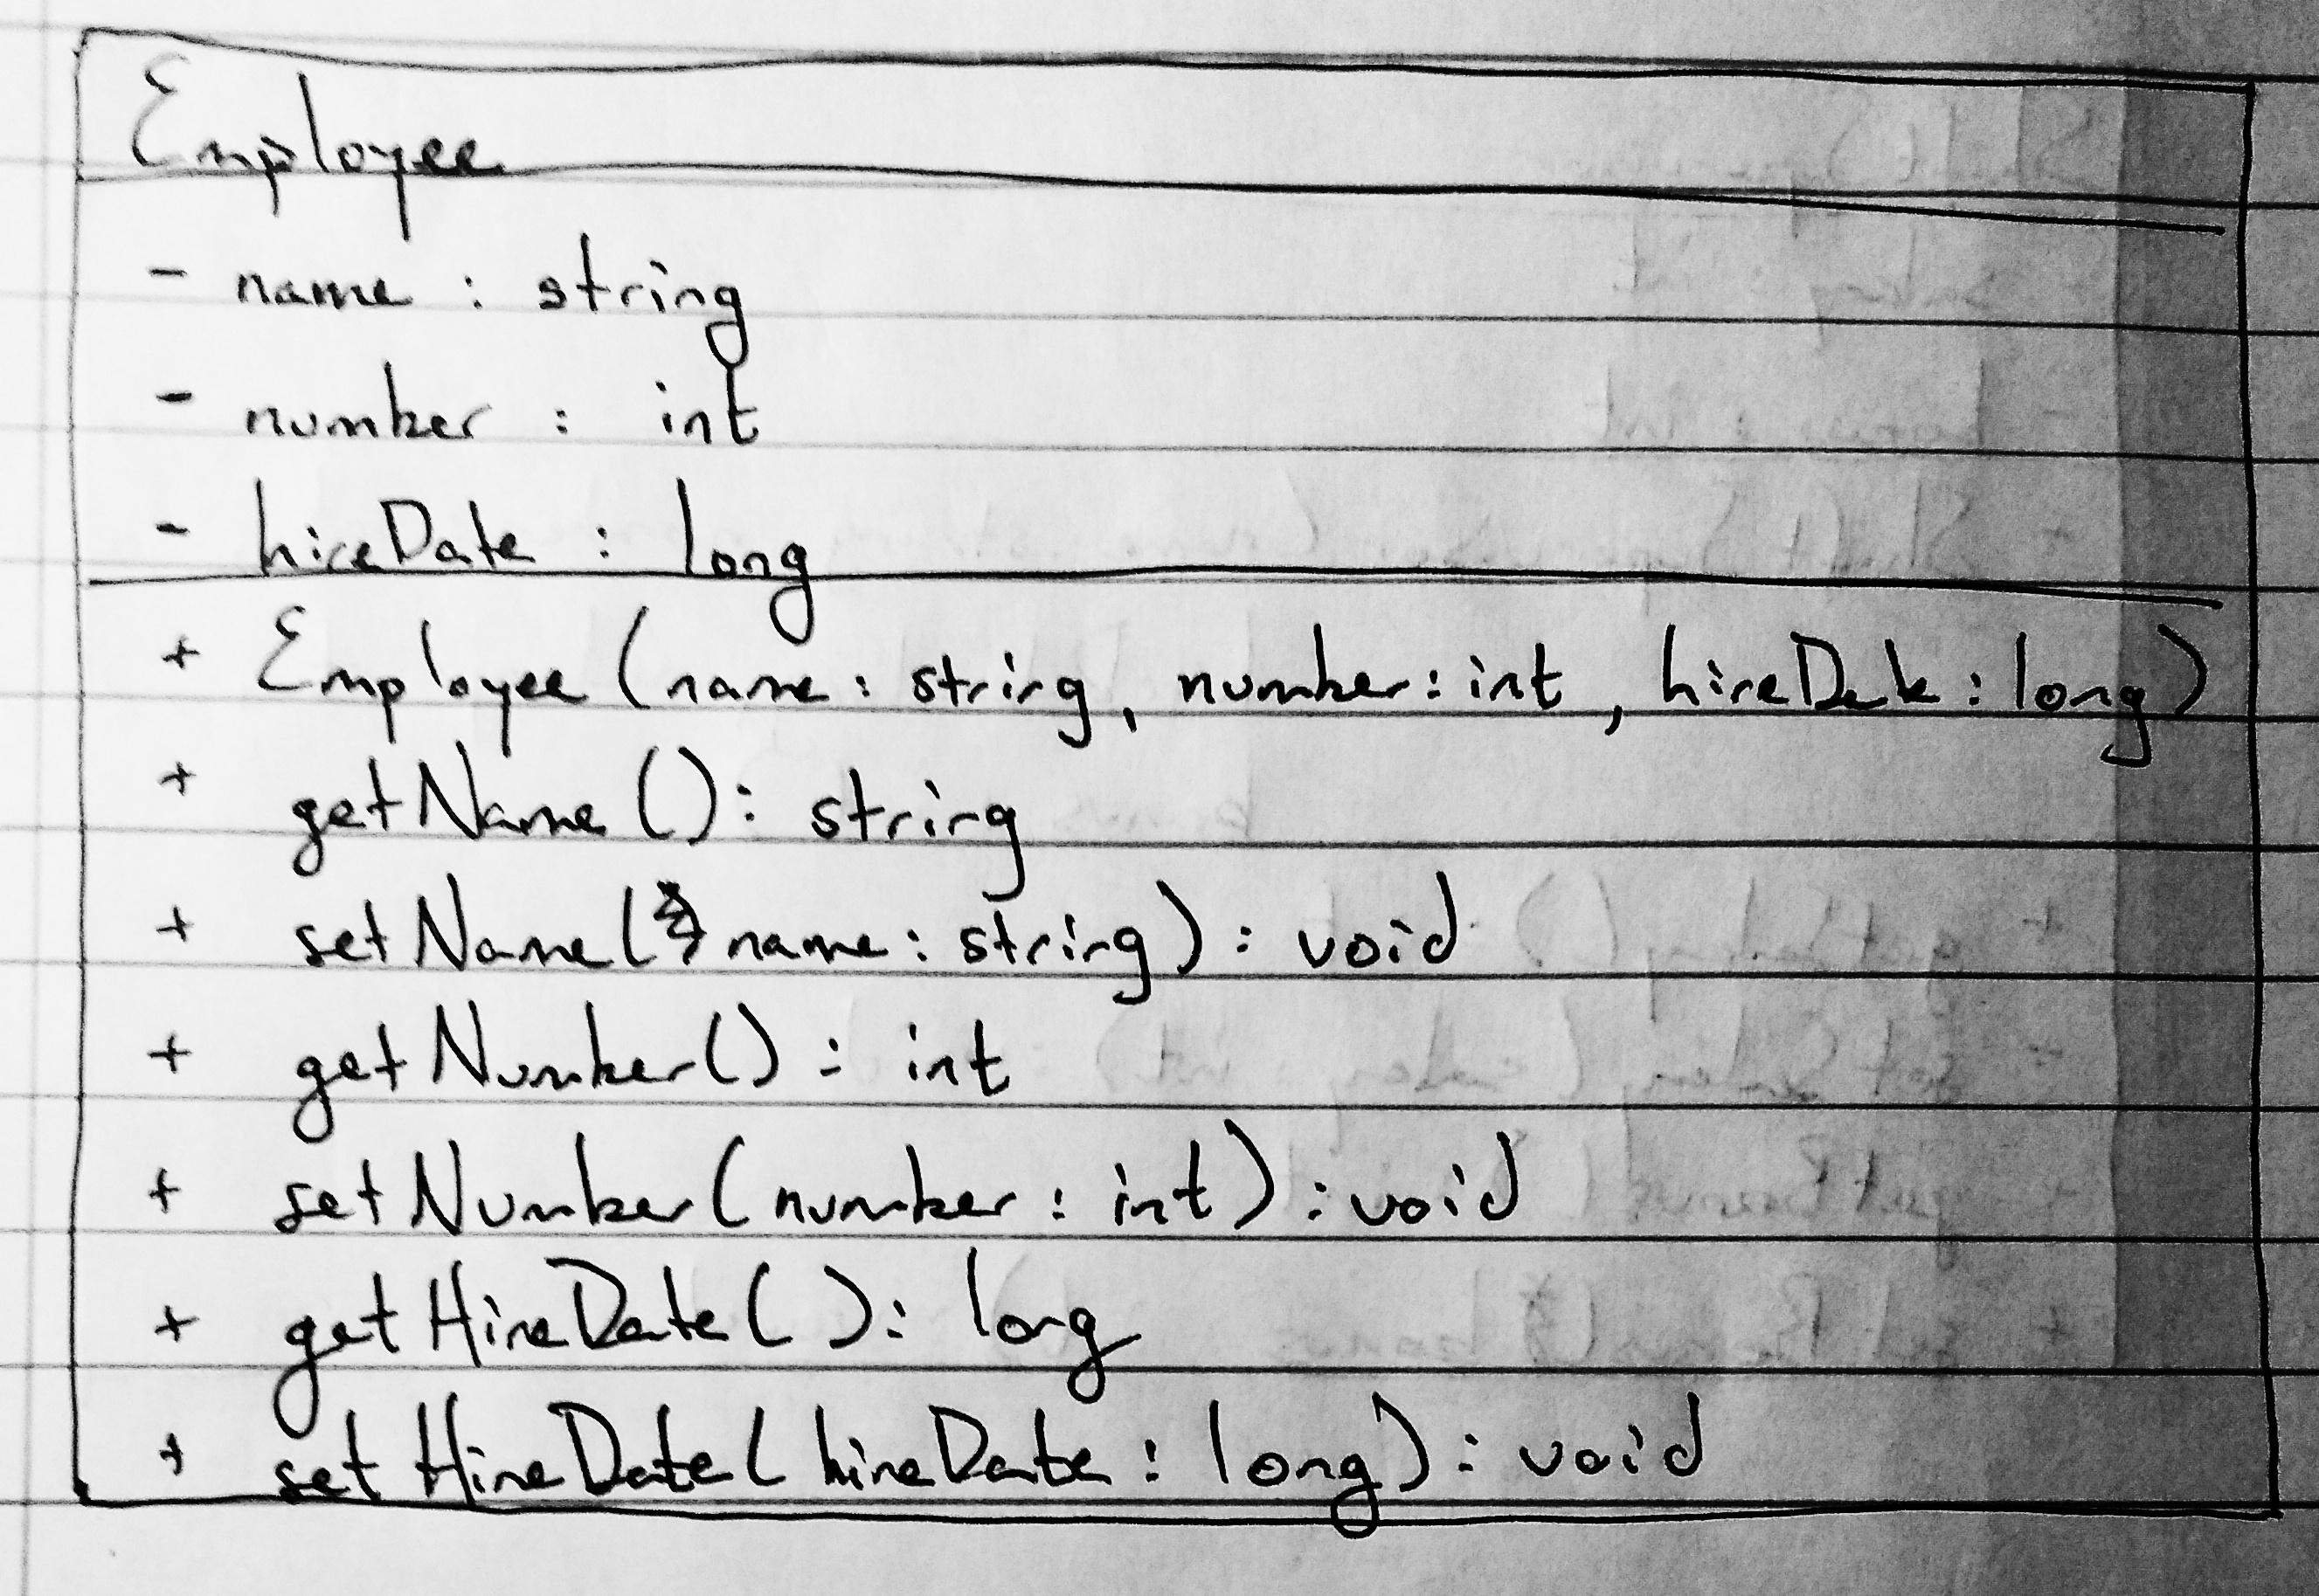 Employee
- name : string
- number : int
- hireDate : long
+ Employee (name : string, number : int, hireDate : long)
+ getName () : string
+ setName ( name : string) : void
+ getNumber() : int
+ setNumber (number : int) : void
+ getHireDate ( ) : long
+ setHireDate ( hireDate : long) : void